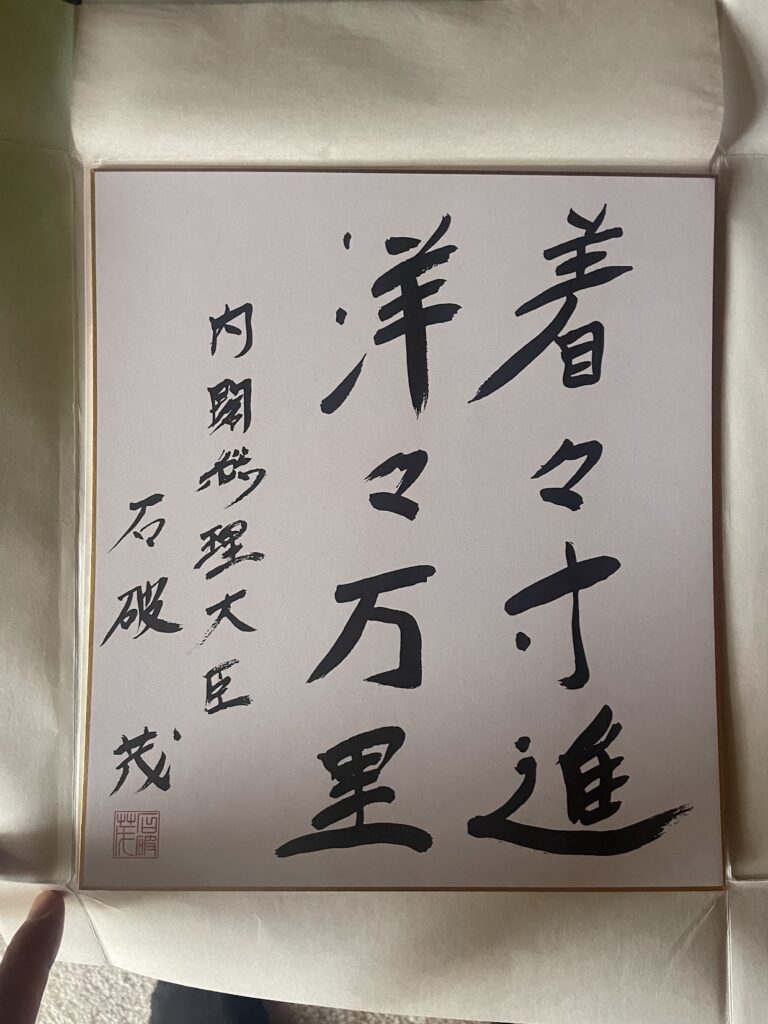 着々寸進
洋々万里
内閣総理大臣
石破茂
石破
茂